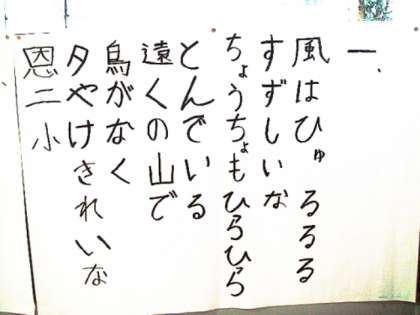 一、
風はひゅるるる
すずしいな
ちょうちょもひらひら
とんでいる
遠くの山で
鳥がなく
夕やけきれいな
恩二小